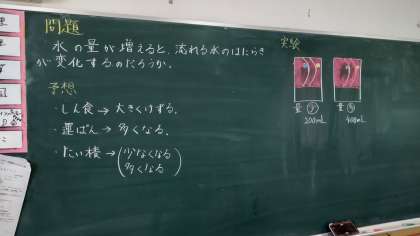 問題
水の量が増えると、流れる水のはたらき
が変化するのだろうか。
予想
・しん食→大きくけずる。
・運ぱん→多くなる。
・たい積→(少なくなる
多くなる)
実験
量 少
200mL
量 多
400mL